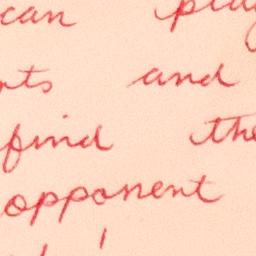 can play
and
find the
opponent